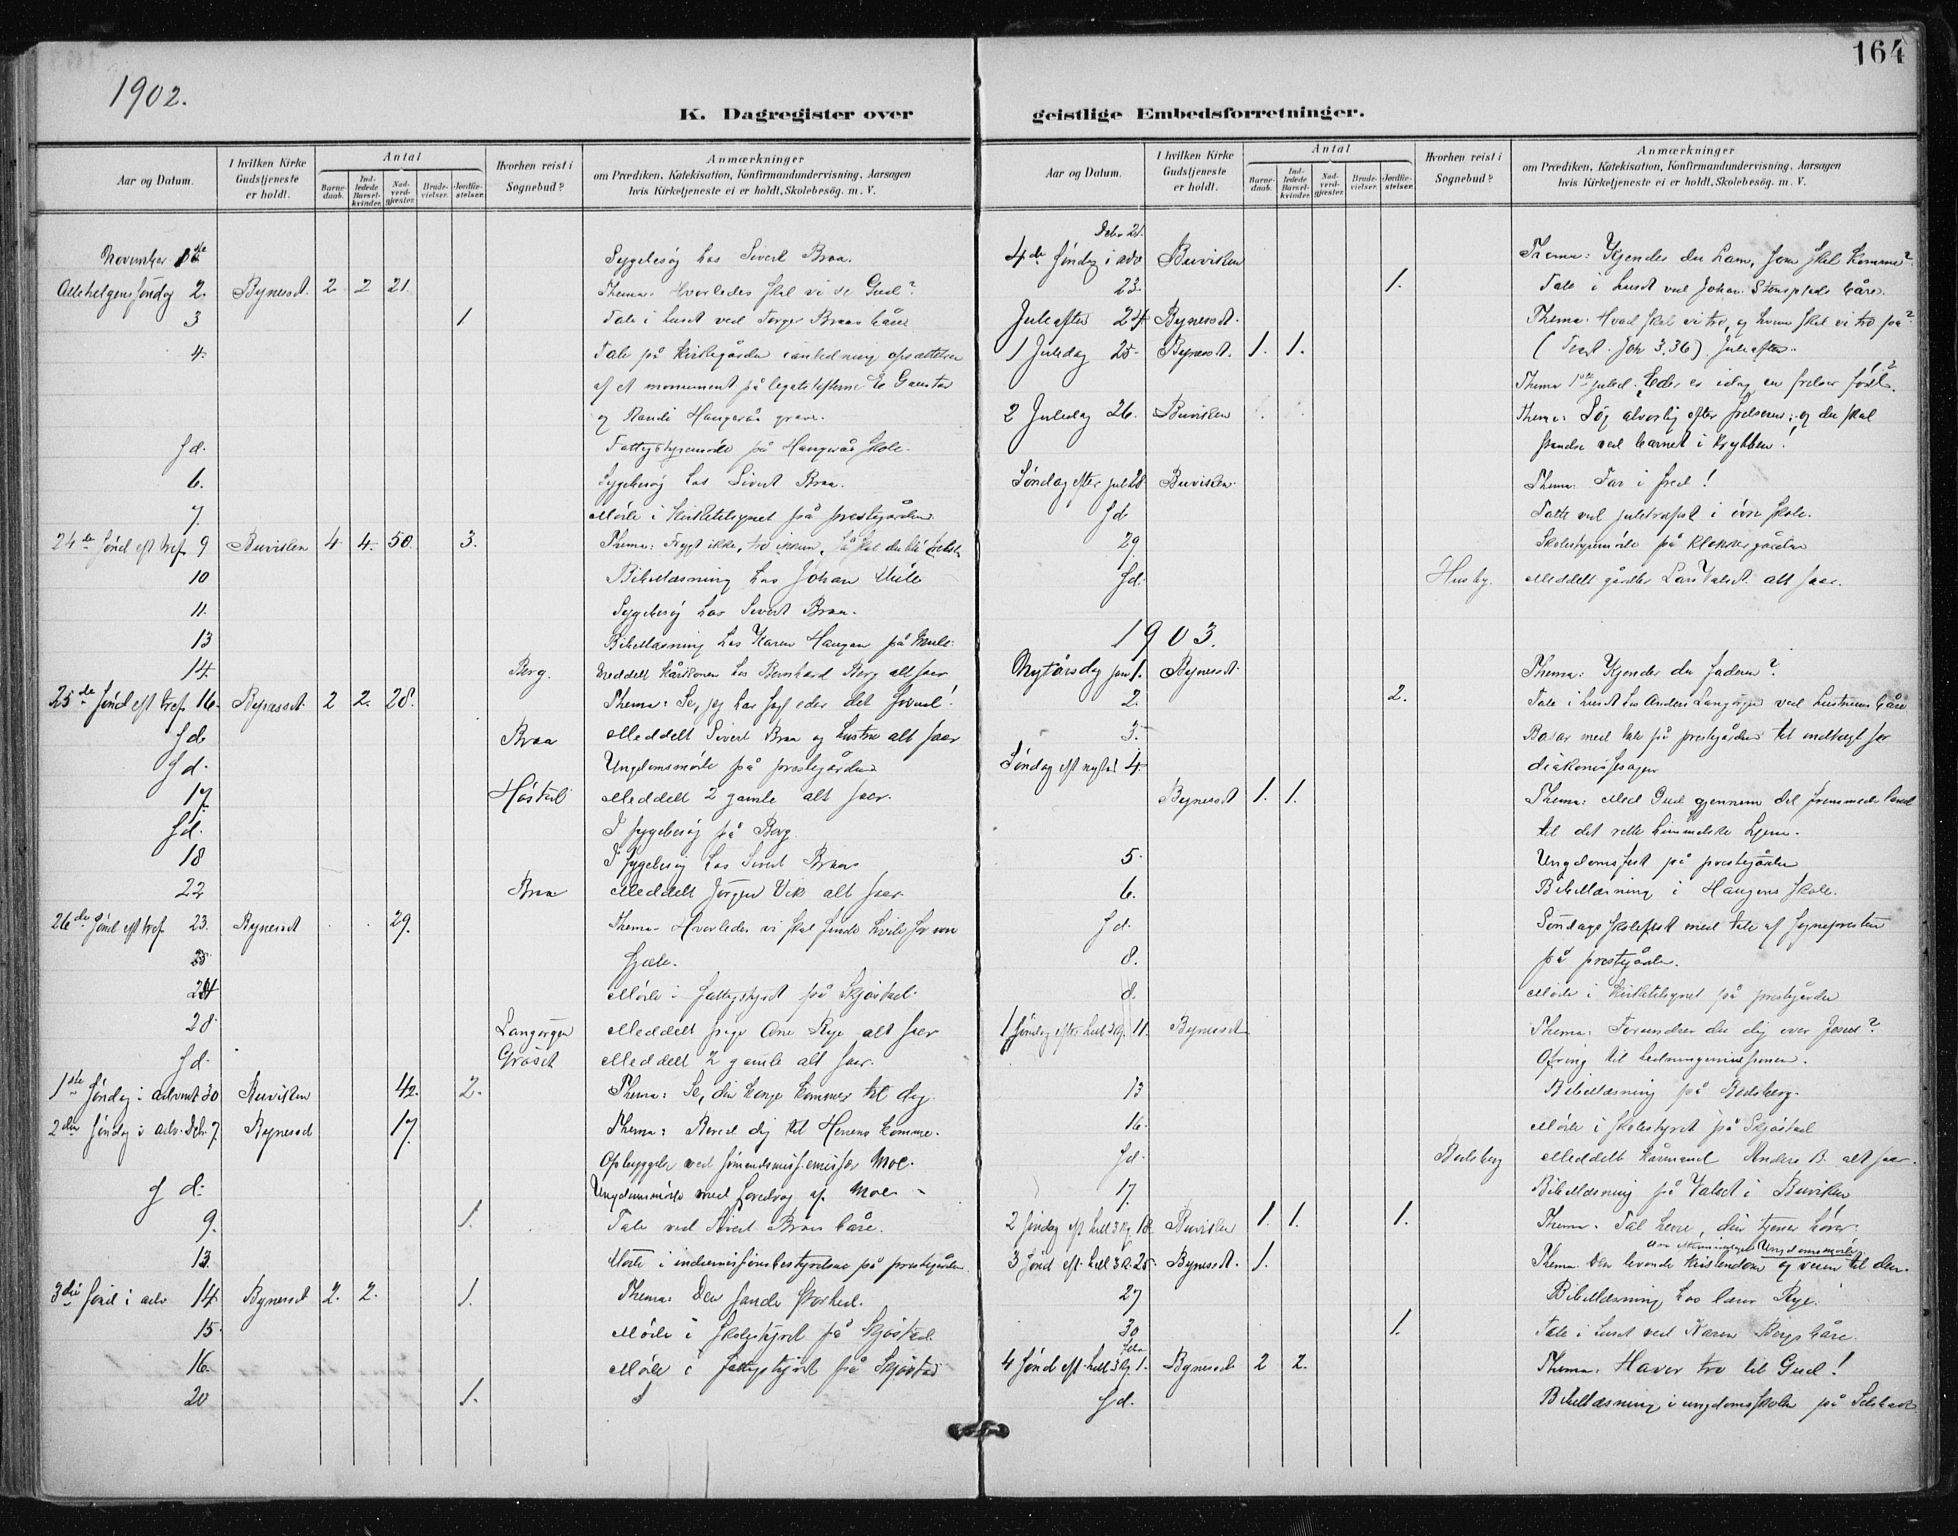 164
1902.
K. Dagregister over geistlige Embedsforretninger.
Aar og Datum.
I hvilken Kirke Gudstjeneste er holdt.
Antal
Barnedaab.
Indledede Barselkvinder.
Nadverdgjæster.
Brudevielser.
Jordfæstelser.
Hvorhen reist i Sognebud?
Anmærkninger
om Prædiken, Katekisation, Konfirmandundervisning, Aarsagen
hvis Kirketjeneste ei er holdt, Skolebesög. m. V.
November 1ste Sygebesøg hos Sivert Braa.
Allehelgens søndag 2. Bynesset. 2 2 21. Thema: Hvorledes skal vi se Gud?
3 1 Tale i huset ved Braas båre
4. Tale på kirkegården i anledning opsættelse
af et monument på legatstifterne E. Gaustad
og Randi Hangerås grav.
s. d. Fattigstyremøde på Hangerås skole.
6. Sygebesøg hos Sivert Braa.
7. Møde i kirketilsynet på prestegården.
24de sønd eft tref. 9 Buviken 4 4. 50. 3. Thema: Frygt ikke, tro ikkun, så skal du bli frelst
10 Bibellæsning hos Johan
11. Sygebesøg hos Sivert Braa.
13 Bibellæsning hos Karen Haugan på Mule.
14. Berg. Meddelt hos Bernhard Berg alt saer
25de sønd eft tref. 16. Bynesset. 2 2. 28. Thema: Se, jeg har sagt eder det forud!
s. d. Braa Meddelt Sivert Braa og hustru alt saer
s. d. Ungdomsmøde på prestegården
17. Høstad Meddelt 2 gamle alt saer.
s. d. I sygebesøg på Berg.
18 I sygebesøg hos Sivert Braa
22 Braa Meddelt Jørgen Vik alt saer.
26de sønd eft tref. 23. Bynesset 29. Thema: Hvorledes vi skal finde hvile for vor
sjæle.
24 Møde i fattigstyret på Skjøstad.
28 Langørgen Meddelt pige Ane Rye alt saer
s. d. Grøset Meddelt 2 gamle alt saer.
1ste søndag i advent 30 Buviken 42. 2. Thema: Se, din konge kommer til dig.
2den søndag i adv. Debr 7. Bynesset 17. Thema: Bered dig til Herrens komme.
Opbyggelse ved Moe.
s. d. Ungdomsmøde med foredrag af Moe.
9. 1. Tale ved Sivert Braas båre.
13. Møde i indremissionsbestyrelsen på prestegården
3die sønd i adv 14. Bynesset 2. 2. 1. Thema: Den sande storhed.
15. Møde i skolestyret på Skjøstad.
16. Møde i fattigstyret på Skjøstad
20 1.
Debr 21.
4de søndag i adv Buviken Thema: Kjender du ham, som skal komme?
23. 1. Tale i huset ved Johan båre.
Juleaften 24. Bynesset. Thema: Hvad skal vi tro, og hvem skal vi tro paa?
1 Juledag 25. Bynesset. 1. 1. (Text. Joh 3.36) Juleaften.
Thema 1ste juled. Eder er idag en frelser født.
2 Juledag 26. Buviken Thema: Søg alvorlig efter frelseren, og du skal
stande ved barnet i krybben!
Søndag efter jul 28 Buviken. Thema: Far i fred!
s. d. Tale ved juletræfest i øvre skole.
29 Skolestyremøde på klokkergården
s. d. Husby. Meddelt Lars Valset alt saer.
1903.
Nytårsdag jan 1. Bynesset. Thema: Kjender du faderen?
2. 2. Tale i huset hos Anders Langørgen ved hustruens båre
3. Basar med tale på prestegården til indtægt for
diakonissesagen
Søndag eft nytår 4. Bynesset 1. 1. Thema: Med Gud gjennem det fremmede land
til det rette himmelske hjem.
5. Ungdomsfest på prestegården
6. Bibellæsning i Haugens skole.
s. d. Søndagsskolefest med tale af sognepresten
8. på prestegården.
8. Møde i kirketilsynet på prestegården
1 søndag efter hell 3 Kg. 11. Bynesset Thema: Forundrer du dig over Jesus?
Ofring til hedningemissionen.
13 Bibellæsning på Bodsberg.
16. Møde i skolestyret på Skjøstad
s. d. Bodsberg Meddelt kårmand Anders B. alt saer.
17. Bibellæsning på Valset i Buviken
2 søndag eft hell 3 Kg. 18. Buviken 1. 1. 1. Thema. Tal herre, din tjener hører.
3 sønd eft. hell 3 K. 25. Bynesset. 1. Ungdomsmøde
Thema Den levende kristendom og veien til den.
27 Bibellæsning hos lærer Rye.
30 1. Tale i huset ved Karen Bergs båre.
4 sønd eft. hell 3 Kg. Febr 1. Bynesset 2 2. Thema: Haver tro til Gud!
s. d. Bibellæsning i ungdomsskolen på